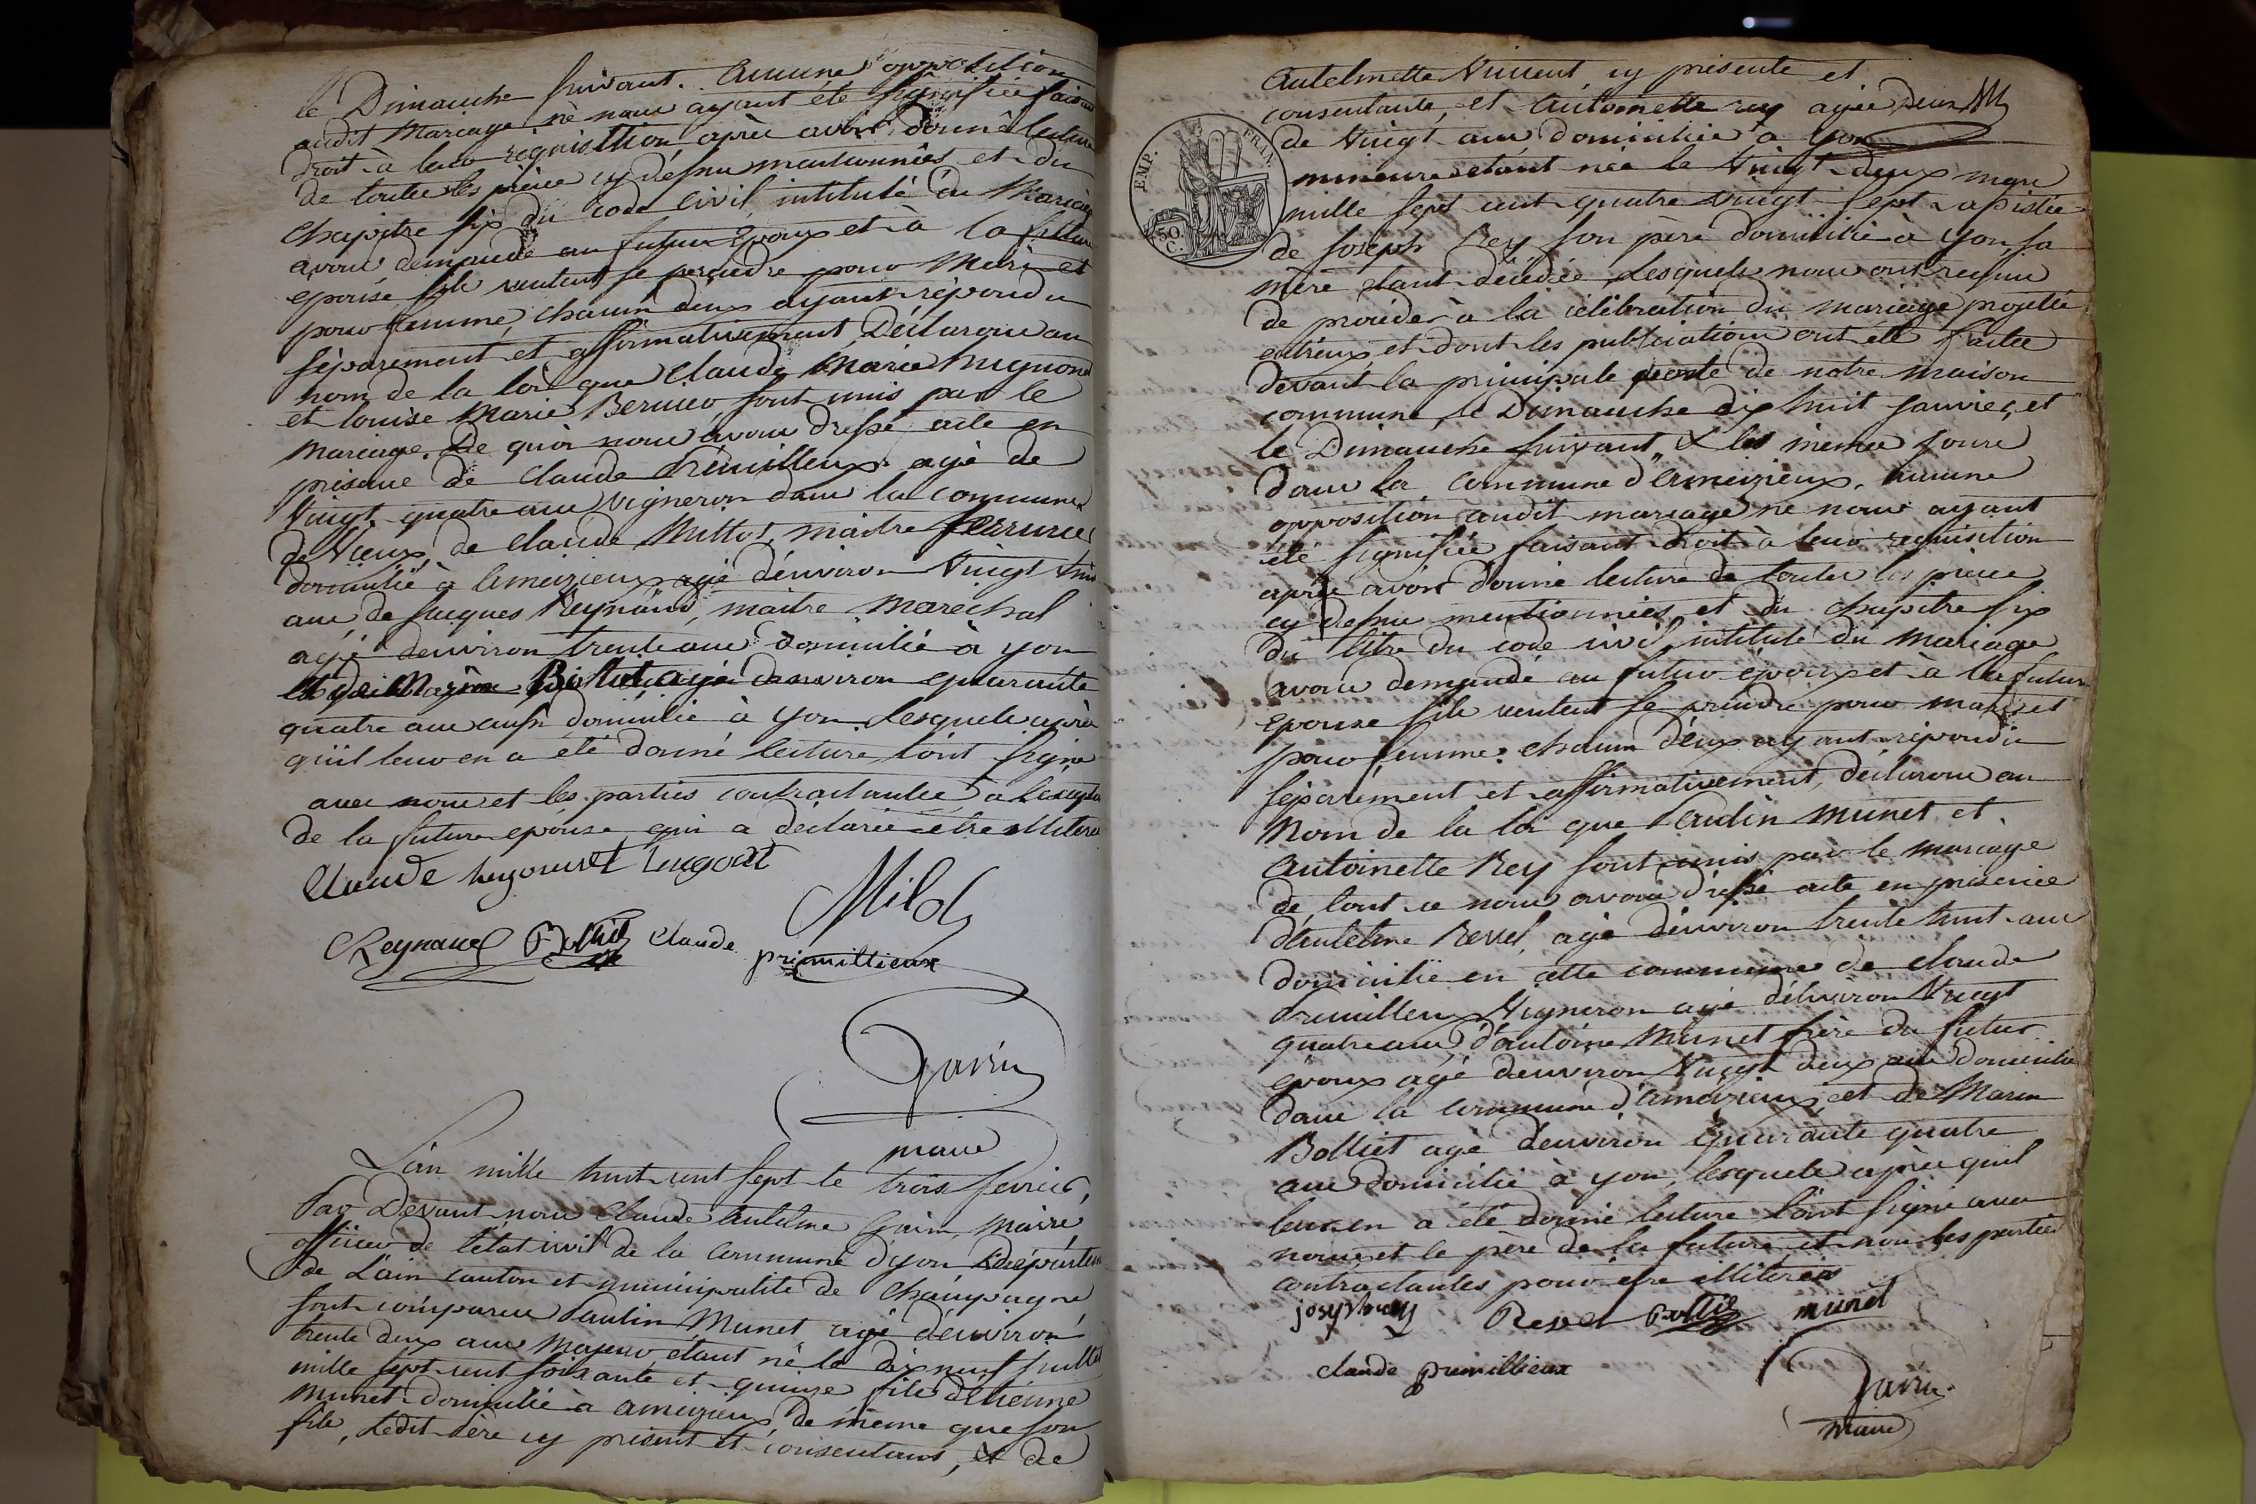 le Dimanche suivant. Aucune opposition
audit mariage ne nous ayant été signifiée faisant
droit à leur réquisition, après avoir donné lecture
de toutes les pièces cy dessus mentionnées et du
chapitre six du code civil, intitulé du Mariage
avons demandé au futur époux et à la future
epouse s'ils veulent se prendre pour Mari et
pour femme, chacun deux ayant répondu
séparément et affirmativement, Déclarons au
nom de la loi que Claude Marie
et Louise Marie sont unis par le
Mariage. De quoi nous avons dressé acte en
présence de Claude Prémillieux agé de
vingt quatre ans vigneron dans la commune
de Vieux, de Claude maitre serrurier
domicilié à ameizieux agé d'environ vingt
ans, de Jacques Reynaud, maitre marechal
agé denviron trente ans domicilié à yon
et de Marin Bolliet agé denviron quarante
quatre ans aussi domicilié à yon lesquels après
qu'il leur en a été donné lecture l'ont signé
avec nous et les parties contractantes à l'exception
de la future epouse qui a declaré etre illiterée
Claude
Reynaud Bollié Claude
primillieux
Gavin
maire
L'an mille huit cent sept le trois fevrier,
Par Devant nous Claude Antelme Gavin, maire,
officier de l'état civil de la commune d'yon Département
de L'ain canton et municipalité de Champagne
sont comparus Paulin Munet agé d'environ
trente deux ans majeur étant né le dix neuf juillet
mille sept cent soixante et quinze fils d'étienne
munet domicilié à ameizieux de même que son
fils, Ledit Père cy présent et consentant, et de
EMP. FRAN.
50. C.
antelmette Vincent cy présente et
consentante, et antoinette rey agée
de vingt ans domiciliée à yon
mineure etant née le vingt deux mars
mille sept cent quatre vingt sept assistée
de Joseph Rey son père domicilié à yon sa
mère etant décédée, Lesquels nous ont requis
de procéder à la célébration du mariage projetté
entreux et dont les publications ont été faites
devant la principale porte de notre maison
commune, le Dimanche dix huit janvier, et
le Dimanche suivant & les memes jours
dans la commune d'ameizieux. Aucune
opposition audit mariage ne nous ayant
été signifiée faisant droit à leur requisition
après avoir donné lecture de toutes les pièces
cy dessus mentionnées et du chapitre six
du titre du code civil intitulé du Mariage
avons demandé au futur époux et à la future
epouse s'ils veulent se prendre pour mari et
pour femme; chacun d'eux ayant répondu
séparement et affirmativement, déclarons au
Nom de la loi que Paulin munet et
antoinette Rey sont unis par le mariage
de tout ce nous avons dressé acte en présence
d'antelme Revel, agé d'environ trente huit ans
domicilié en cette commune de Claude
Primillieux Vigneron agé d'environ vingt
quatre ans, d'antoine Munet frère du futur
époux agé denviron vingt deux ans domicilié
dans la commune d'ameizieux, et de Marin
Bolliet agé denviron quarante quatre
ans domicilié à yon, lesquels après quil
leur en a été donné lecture l'ont signé avec
nous et le père de la future et non les parties
contractantes pour etre illiterées
Revel Bollié munet
claude primillieux
Gavin
maire